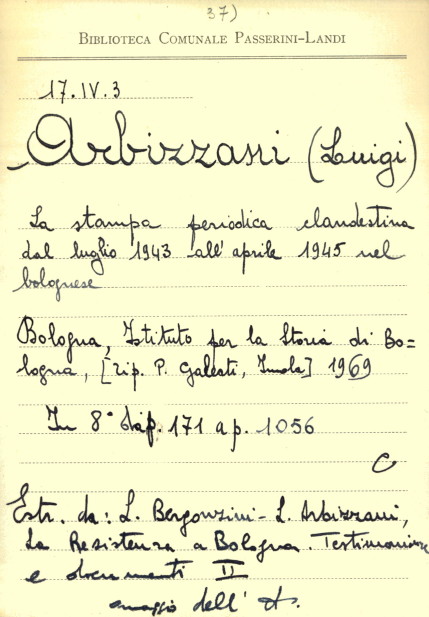 37)
BIBLIOTECA COMUNALE PASSERINI-LANDI
17.IV.3
Arbizzani (Luigi)
La stampa periodica clandestina
dal luglio 1943 all'aprile 1945 nel
bolognese
Bologna, Istituto per la Storia di Bo=
logna, [tip. P. Galeati, Imola] 1969
In 8° da p. 171 a p. 1056
C
Estr. da: L. Bergonzini - L. Arbizzani,
La Resistenza a Bologna. Testimonianze
e documenti II
omaggio dell' A.